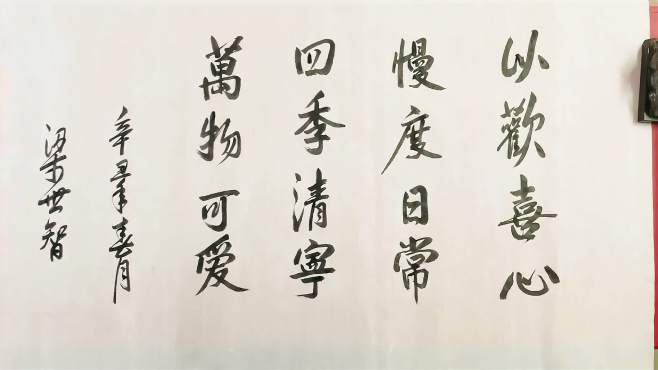 以歡喜心
慢度日常
四季清寧
萬物可愛
辛丑年春月
梁世智